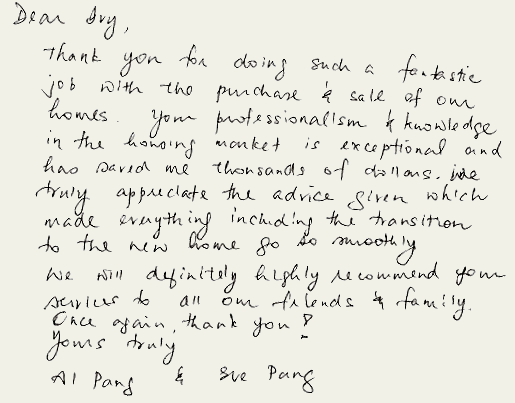 Dear Ivy,
Thank you for doing such a fantastic
job with the purchase & sale of our
homes. Your professionalism & knowledge
in the housing market is exceptional and
has saved me thousands of dollars. We
truly appreciate the advice given which
made everything including the transition
to the new home go so smoothly
We will definitely highly recommend your
services to all our friends & family.
Once again, thank you!
Yours truly
Al Pang & Sue Pang